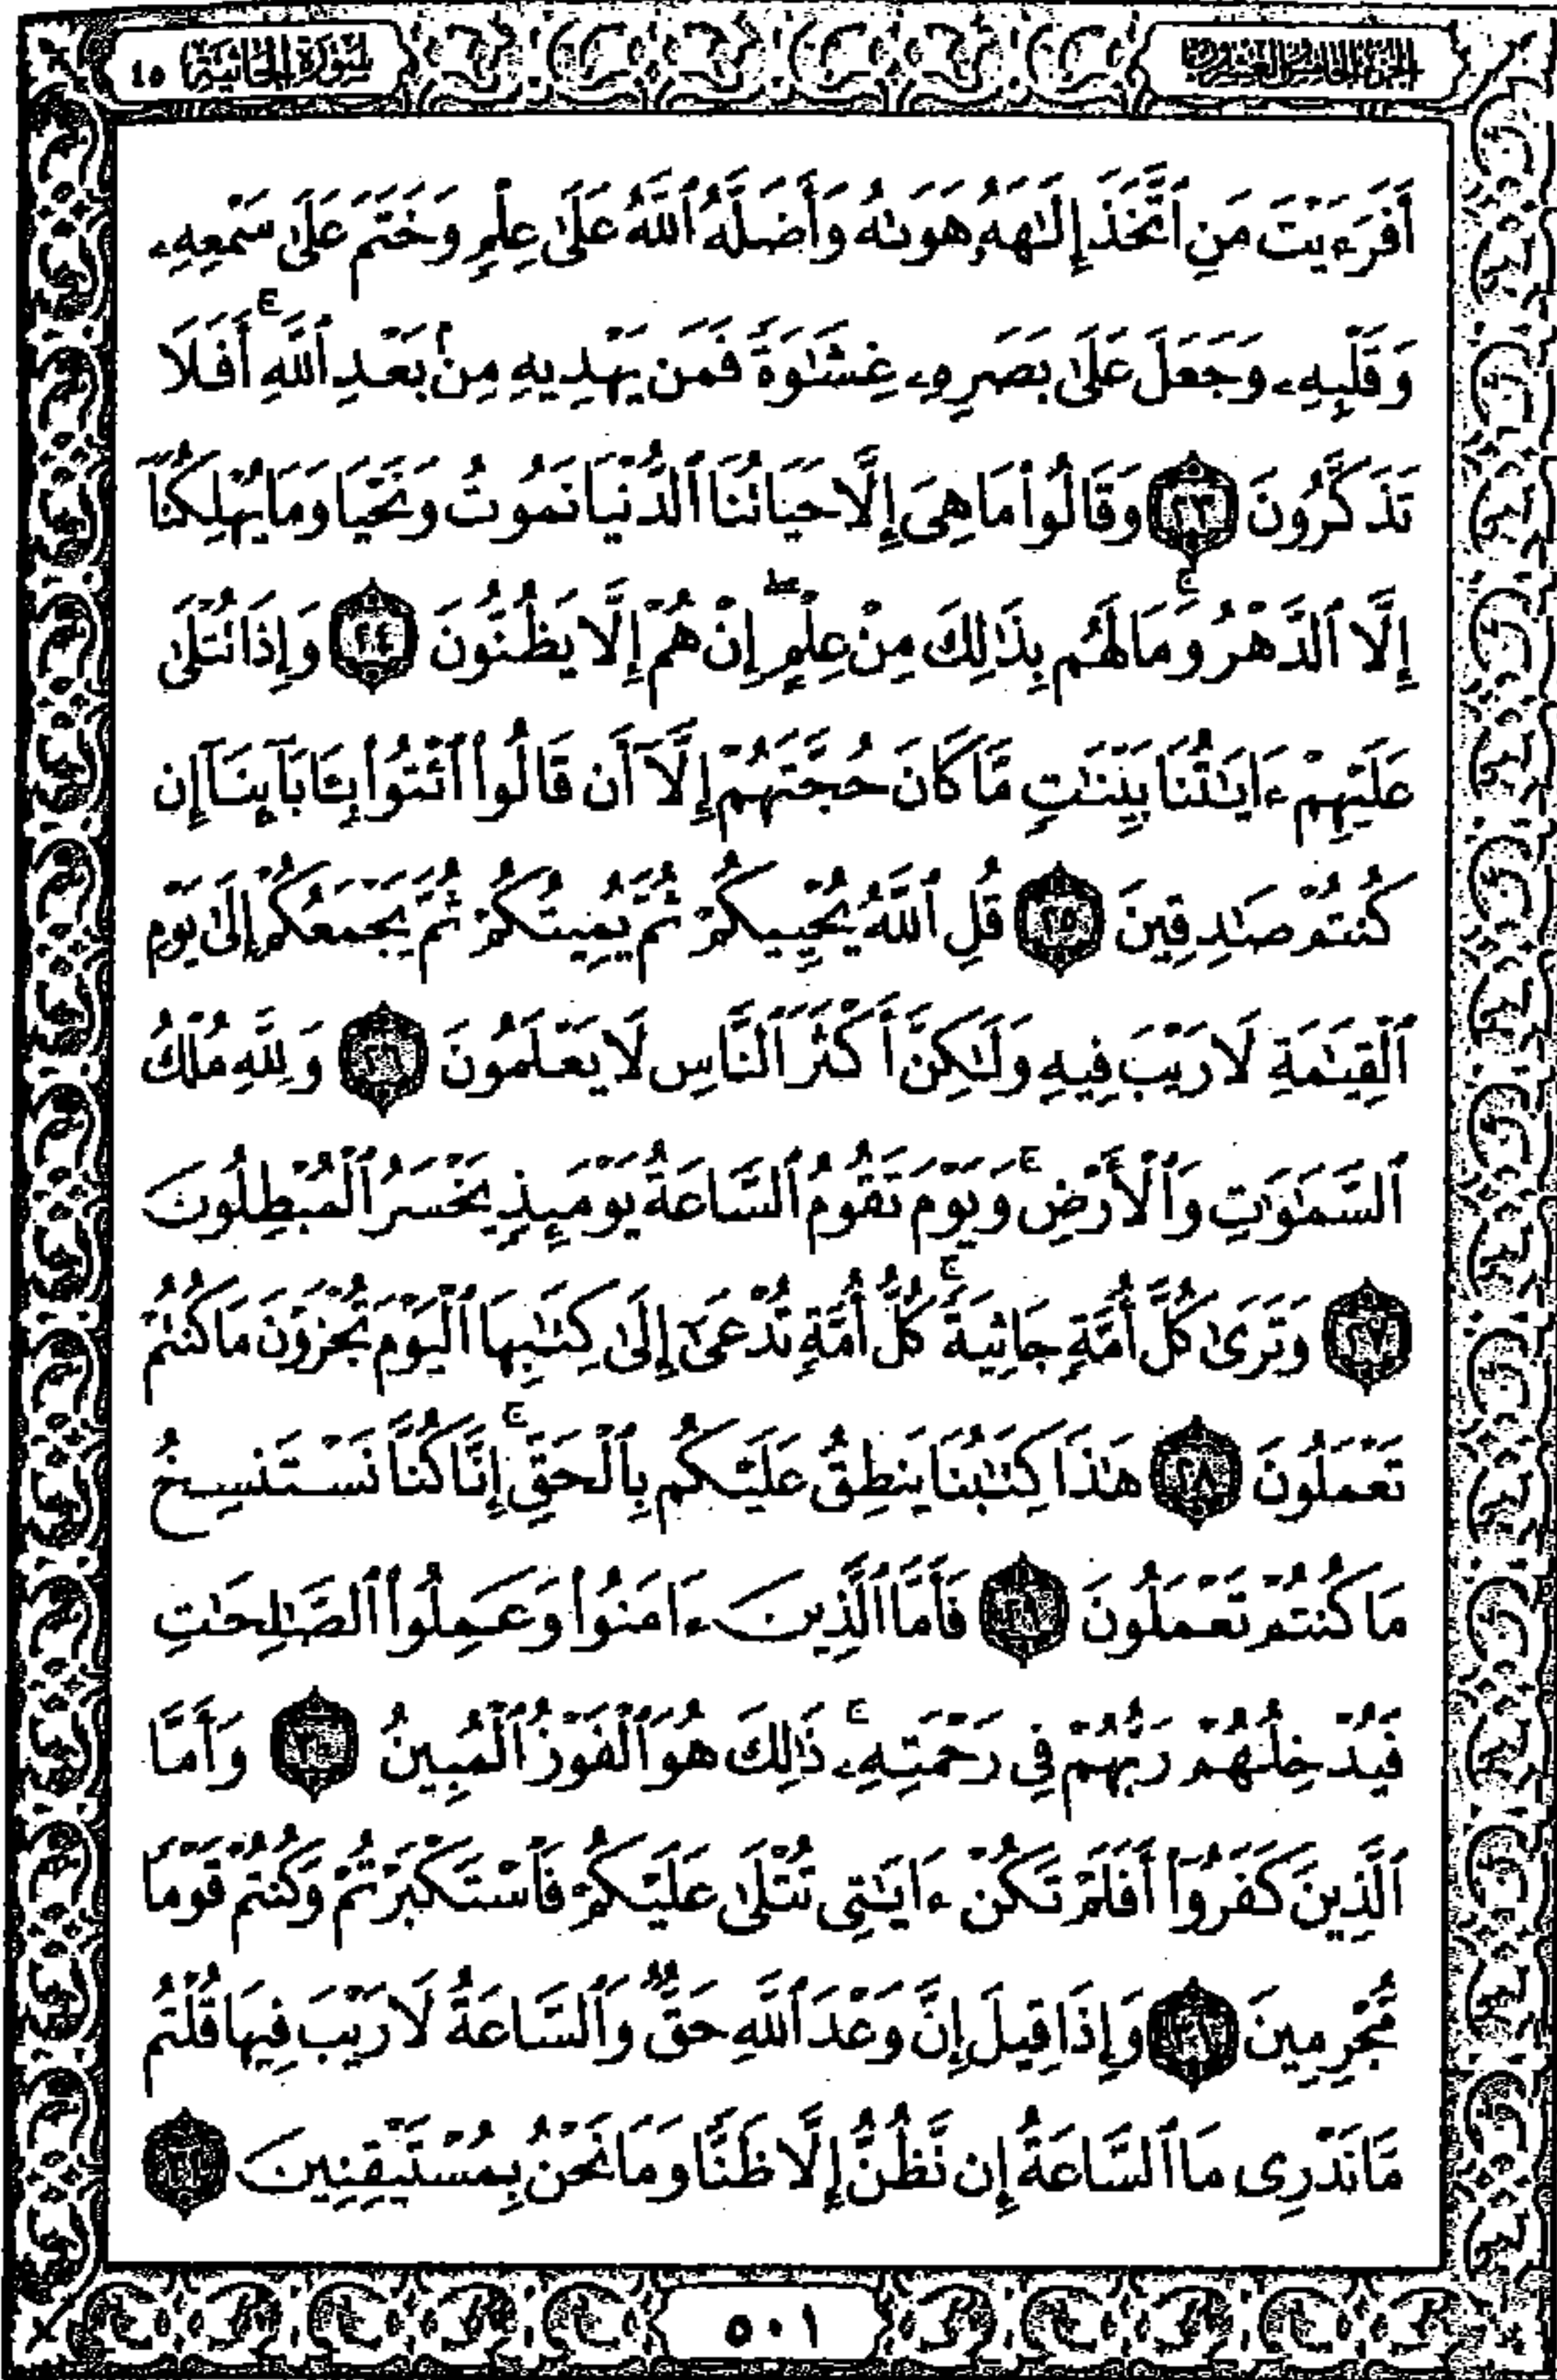 الجزء الخامس والعشرون
سُورَةُ الجَاثِيَةِ ٤٥
أَفَرَءَيْتَ مَنِ ٱتَّخَذَ إِلَٰهَهُۥ هَوَىٰهُ وَأَضَلَّهُ ٱللَّهُ عَلَىٰ عِلْمٍ وَخَتَمَ عَلَىٰ سَمْعِهِۦ
وَقَلْبِهِۦ وَجَعَلَ عَلَىٰ بَصَرِهِۦ غِشَٰوَةً فَمَن يَهْدِيهِ مِنۢ بَعْدِ ٱللَّهِ ۚ أَفَلَا
تَذَكَّرُونَ ٢٣ وَقَالُوا۟ مَا هِىَ إِلَّا حَيَاتُنَا ٱلدُّنْيَا نَمُوتُ وَنَحْيَا وَمَا يُهْلِكُنَآ
إِلَّا ٱلدَّهْرُ ۚ وَمَا لَهُم بِذَٰلِكَ مِنْ عِلْمٍ ۖ إِنْ هُمْ إِلَّا يَظُنُّونَ ٢٤ وَإِذَا تُتْلَىٰ
عَلَيْهِمْ ءَايَٰتُنَا بَيِّنَٰتٍ مَّا كَانَ حُجَّتَهُمْ إِلَّآ أَن قَالُوا۟ ٱئْتُوا۟ بِـَٔابَآئِنَآ إِن
كُنتُمْ صَٰدِقِينَ ٢٥ قُلِ ٱللَّهُ يُحْيِيكُمْ ثُمَّ يُمِيتُكُمْ ثُمَّ يَجْمَعُكُمْ إِلَىٰ يَوْمِ
ٱلْقِيَٰمَةِ لَا رَيْبَ فِيهِ وَلَٰكِنَّ أَكْثَرَ ٱلنَّاسِ لَا يَعْلَمُونَ ٢٦ وَلِلَّهِ مُلْكُ
ٱلسَّمَٰوَٰتِ وَٱلْأَرْضِ ۚ وَيَوْمَ تَقُومُ ٱلسَّاعَةُ يَوْمَئِذٍ يَخْسَرُ ٱلْمُبْطِلُونَ
٢٧ وَتَرَىٰ كُلَّ أُمَّةٍ جَاثِيَةً ۚ كُلُّ أُمَّةٍ تُدْعَىٰٓ إِلَىٰ كِتَٰبِهَا ٱلْيَوْمَ تُجْزَوْنَ مَا كُنتُمْ
تَعْمَلُونَ ٢٨ هَٰذَا كِتَٰبُنَا يَنطِقُ عَلَيْكُم بِٱلْحَقِّ ۚ إِنَّا كُنَّا نَسْتَنسِخُ
مَا كُنتُمْ تَعْمَلُونَ ٢٩ فَأَمَّا ٱلَّذِينَ ءَامَنُوا۟ وَعَمِلُوا۟ ٱلصَّٰلِحَٰتِ
فَيُدْخِلُهُمْ رَبُّهُمْ فِى رَحْمَتِهِۦ ۚ ذَٰلِكَ هُوَ ٱلْفَوْزُ ٱلْمُبِينُ ٣٠ وَأَمَّا
ٱلَّذِينَ كَفَرُوٓا۟ أَفَلَمْ تَكُنْ ءَايَٰتِى تُتْلَىٰ عَلَيْكُمْ فَٱسْتَكْبَرْتُمْ وَكُنتُمْ قَوْمًا
مُّجْرِمِينَ ٣١ وَإِذَا قِيلَ إِنَّ وَعْدَ ٱللَّهِ حَقٌّ وَٱلسَّاعَةُ لَا رَيْبَ فِيهَا قُلْتُم
مَّا نَدْرِى مَا ٱلسَّاعَةُ إِن نَّظُنُّ إِلَّا ظَنًّا وَمَا نَحْنُ بِمُسْتَيْقِنِينَ ٣٢
٥٠١